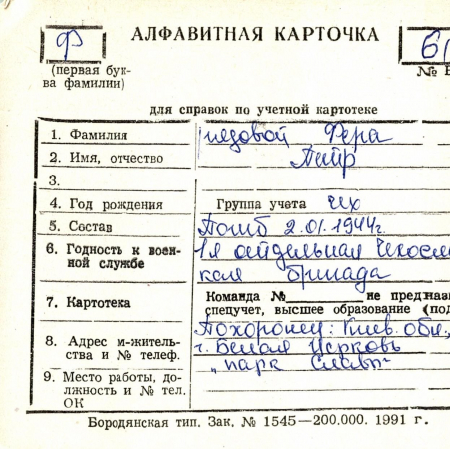 Ф
АЛФАВИТНАЯ КАРТОЧКА
(первая бук-
ва фамилии)
№
для справок по учетной картотеке
1. Фамилия
рядовой Фера
2. Имя, отчество
Петр
3.
4. Год рождения
Группа учета чех
5. Состав
Погиб 2.01.1944г.
6. Годность к воен-
ной службе
1я отдельная Чехосл
кая бригада
7. Картотека
Команда № не предназн
спецучет, высшее образование (под
8. Адрес м-житель-
ства и № телеф.
Похоронен: Киев. обл.,
г. Белая Церковь
"парк Славы"
9. Место работы, до-
лжность и № тел.
ОК
Бородянская тип. Зак. № 1545—200.000. 1991 г.